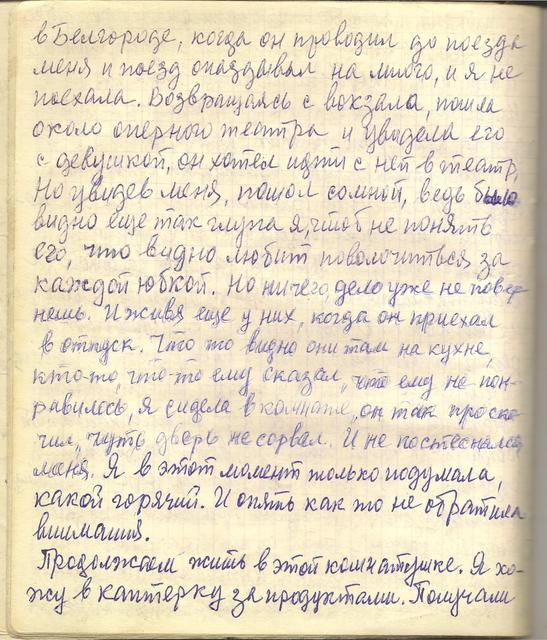 в Белгороде, когда он проводил до поезда
меня и поезд опаздывал на много, и я не
поехала. Возвращаясь с вокзала, пошла
около оперного театра и увидела его
с девушкой, он хотел идти с ней в театр,
Но увидев меня, пошол сомной, ведь было
видно еще так глупа я, чтоб не понять
его, что видно любит поволочиться за
каждой юбкой. Но ничего, дело уже не повер-
нешь. И живя еще у них, когда он приехал
в отпуск. Что то видно они там на кухне,
кто-то, что-то ему сказал, что ему не пон-
равилось, я сидела в комнате, он так проско-
чил, чуть дверь не сорвал. И не постеснялся
меня. Я в этот момент только подумала,
какой горячий. И опять как то не обратила
внимания.
Продолжаем жить в этой комнатушке. Я хо-
жу в каптерку за продуктами. Получали